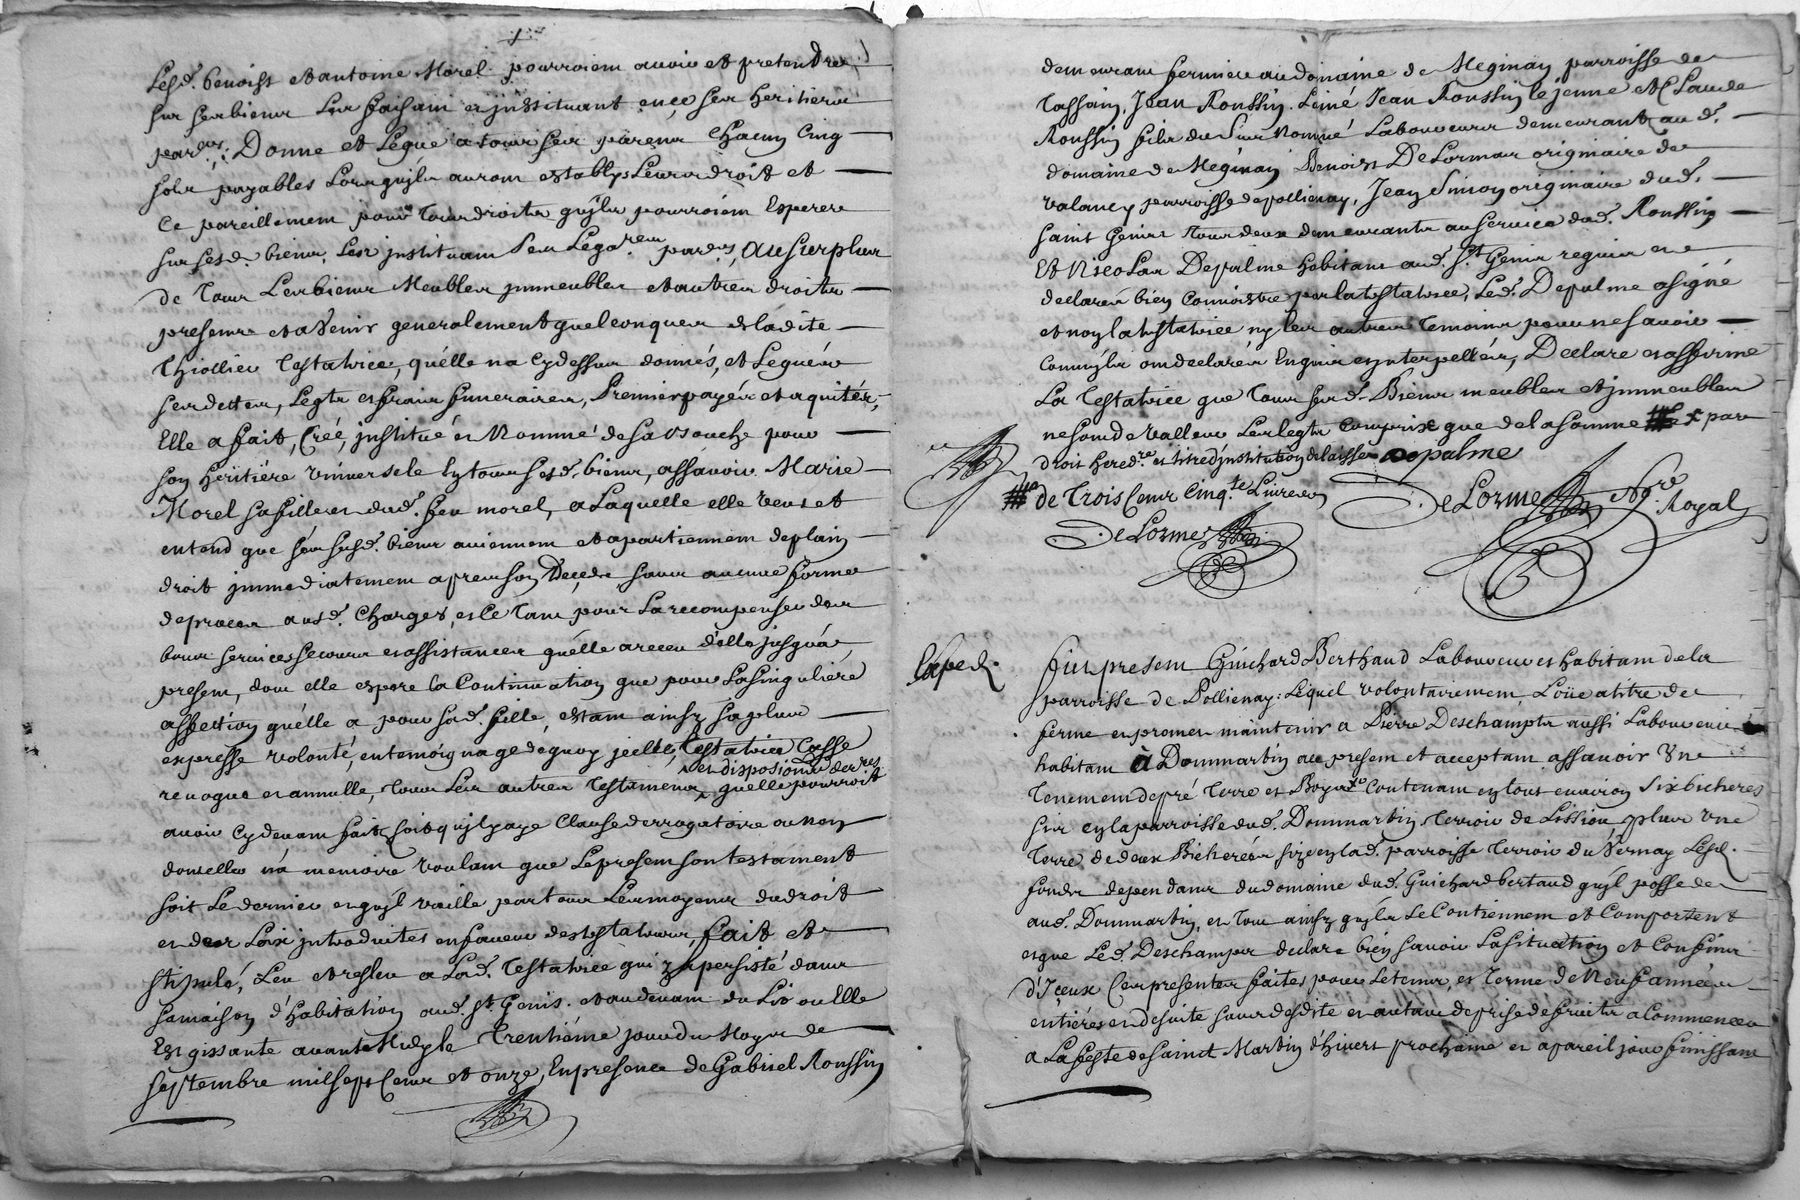 Lesd. benoist et antoine Morel pourroient avoir et pretendre
sur ses biens Les faisant et instituant en ce ses heritiers
par.ers; Donne et Legue a tous ses parens Chacun Cinq
sols payables Lors quils auront estably Leurs droit et
Ce pareillement pour tous droits quils pourroient Esperer
sur sesd. biens, Les instituant ses Lega.res par.ers, Au surplus
de tous Les biens Meubles immeubles et autres droits
presents et a Venir generalement quelconques de ladite
Thiollier Testatrice, quélle na Cy dessus donnés, et Legués
ses dettes, Legts et frais funeraires, Premier payés et aquités,
Elle a fait, Créé, institué et Nommé de sa bouche pour
son heritière universele en tous sesd. biens, assavoir Marie
Morel sa fille et dud. feu morel, a Laquelle elle veut et
entend que ses susd. biens aviennent et apartiennent de plain
droit immediatement apres son Deceds sans aucune forme
de proces ausd. Charges, et Ce tant pour La recompenser des
bons services secours et assistances quélle a receu d'elle jusquá
present, dont elle espere la Continuation que pour La singuliére
affection quélle a pour sad. fille, estant ainsy sa plus
expresse volonté, en temoignage déquoy icelle Testatrice Casse
revoque et annulle, tous Les autres Testaments quelle pourroit
et disposions der.res
avoir Cy devant faits soit quil y aye Clause derrogatoire ou non
dont elle ná memoire voulant que Le present son testament
soit Le dernier et quil vaille par tous Les moyens du droit
et des Loix introduites en faveur des testateurs, fait et
stipulé, Leu et releu a Lad. Testatrice qui y a persisté dans
sa maison d'habitation aud. St. Genis. et au devant du Lit ou Elle
Est gissante avant Midy le Trentiéme jour du Moys de
septembre mil sept Cents et onze, En presence de Gabriel Roussin
demeurant fermier au domaine de Meginay parroisse de
Tassin, Jean Roussin Lainé Jean Roussin le jeune et Claude
Roussin fils du sus Nommé Laboureurs demeurants aud.
domaine de Méginay Benoist DeLorman originaire de
valancy parroisse de pollienay, Jean Simon originaire dud.
saint Genis tous deux demeurants au service dud. Roussin
Et Nicolas Depalme habitant aud. St. Genis requis et
declarés bien Connoistre par la testatrice, Led. Depalme a signé
et non la testatrice ny les autres temoins pour ne savoir
Comm'ils ont declarés Enquis et interpellés, Declare et afferme
La Testatrice que tous susd. Biens meubles et immeubles
ne sont de valleur Les legts Compris que de la somme # par
droit hered.re et titre d'institution delaisse Depalme
# de Trois Cents Cinq.te Livres
DeLorme
DeLorme No.re Royal
Exped.
fut present Guichard Berthaud Laboureur et habitant de la
parroisse de Pollienay: Lequel volontairement Loüe a titre de
ferme et promet maintenir a Pierre Deschampts aussi Laboureur
habitant à Dommartin au present et acceptant assavoir Une
Tenement de pré Terre et Contenant en tout environ six bicheres
sis en la parroisse dud. Dommartin Terroir de Lission plus une
Terre de deux Bicherées sizes en lad. parroisse Terroir du Vernay Lesd.
fonds dependants du domaine dud. Guichard bertaud quil possede
aud. Dommartin, et tout ainsy quils se Contiennent et Comportent
et que Led. Deschamps declare bien savoir La situation et Confins
D'Iceux Ces presentes faites pour Le temps, et terme de Neuf années
entiéres et de suite sans desdite et autant de prise de fruits a Commencer
a La feste de Sainct Martin d'hivert prochaine et a pareil jour finissant